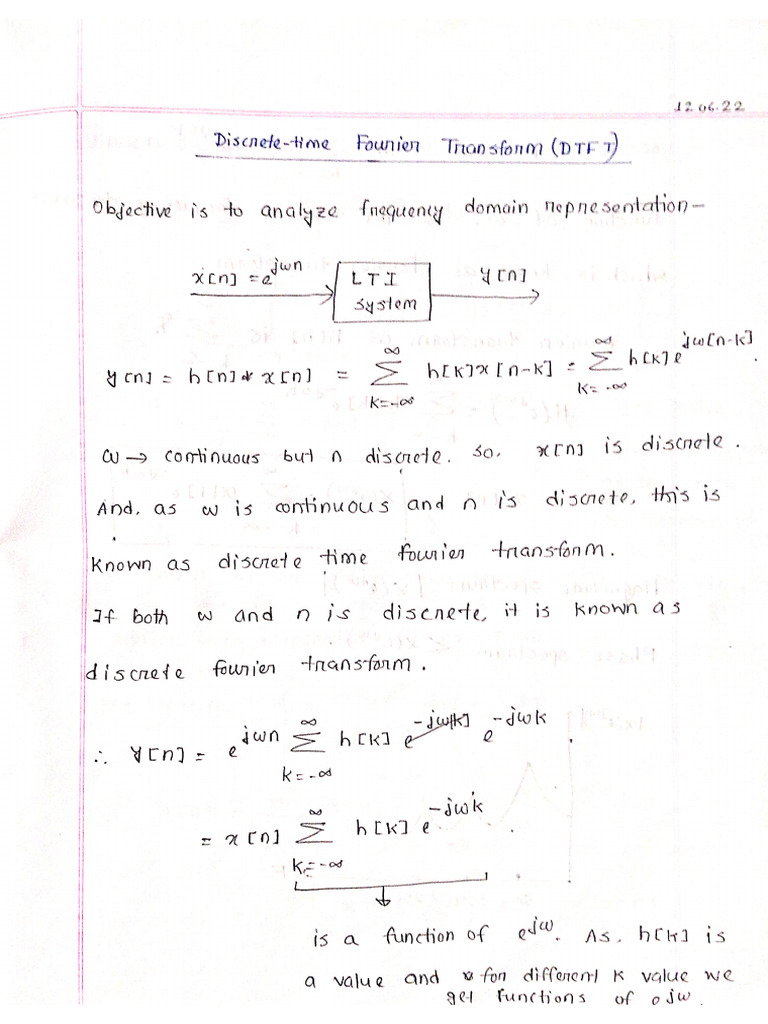 12.06.22
Discrete-time Fourier Transform (DTFT)
Objective is to analyze frequency domain representation-
x[n] = e^{jωn} LTI system y[n]
y[n] = h[n] * x[n] = ∑_{k=-∞}^{∞} h[k]x[n-k] = ∑_{k=-∞}^{∞} h[k]e^{jω[n-k]}.
ω → continuous but n discrete. So, x[n] is discrete.
And, as ω is continuous and n is discrete, this is
known as discrete time fourier transform.
If both ω and n is discrete, it is known as
discrete fourier transform.
∴ y[n] = e^{jωn} ∑_{k=-∞}^{∞} h[k] e^{-jωk}
= x[n] ∑_{k=-∞}^{∞} h[k] e^{-jωk}
is a function of e^{jω}. As, h[k] is
a value and for different k value we
get functions of e^{jω}.